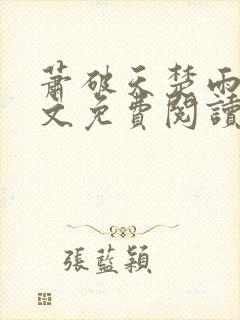 蕭破天楚雨
文免費閱讀
張藍穎